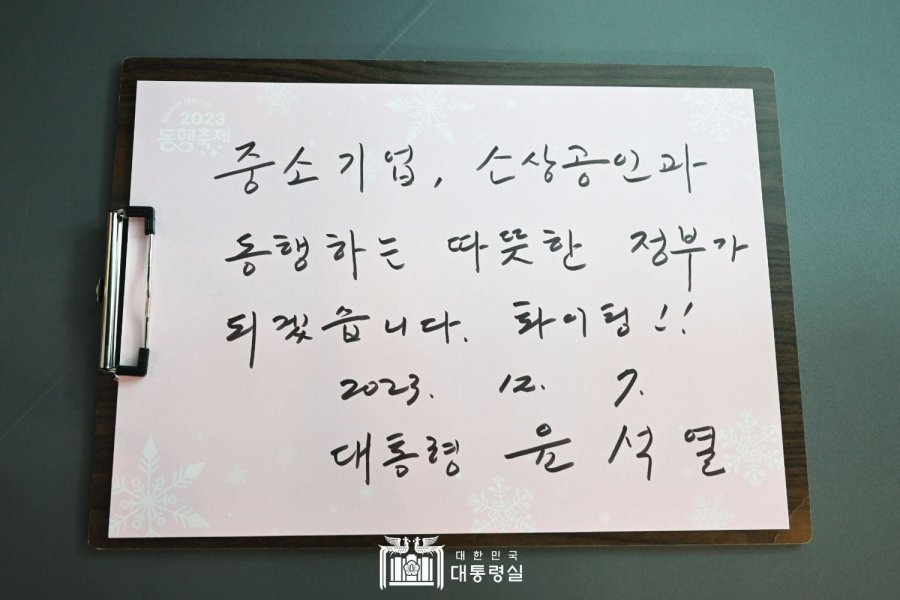 2023
동행축제
중소기업, 소상공인과
동행하는 따뜻한 정부가
되겠습니다. 화이팅!!
2023. 12. 7.
대통령 윤석열
대한민국
대통령실